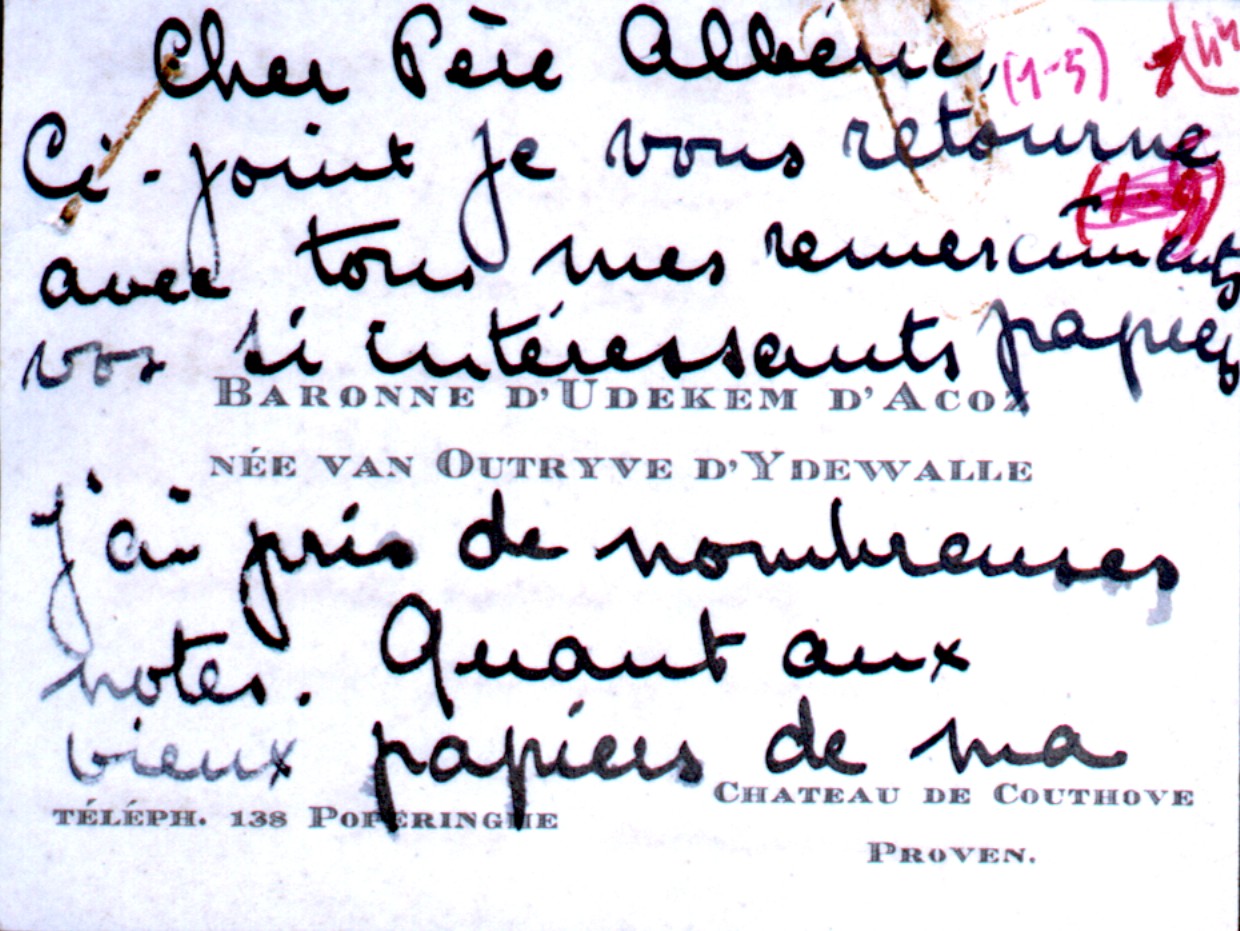 Cher Père Albéric, (1-5)
Ci-joint je vous retourne
avec tous mes remerciments
vos si intéressants papiers
BARONNE D'UDEKEM D'ACOZ
NÉE VAN OUTRYVE D'YDEWALLE
J'ai pris de nombreuses
notes. Quant aux
vieux papiers de ma
TÉLÉPH. 138 POPERINGHE
CHATEAU DE COUTHOVE
PROVEN.